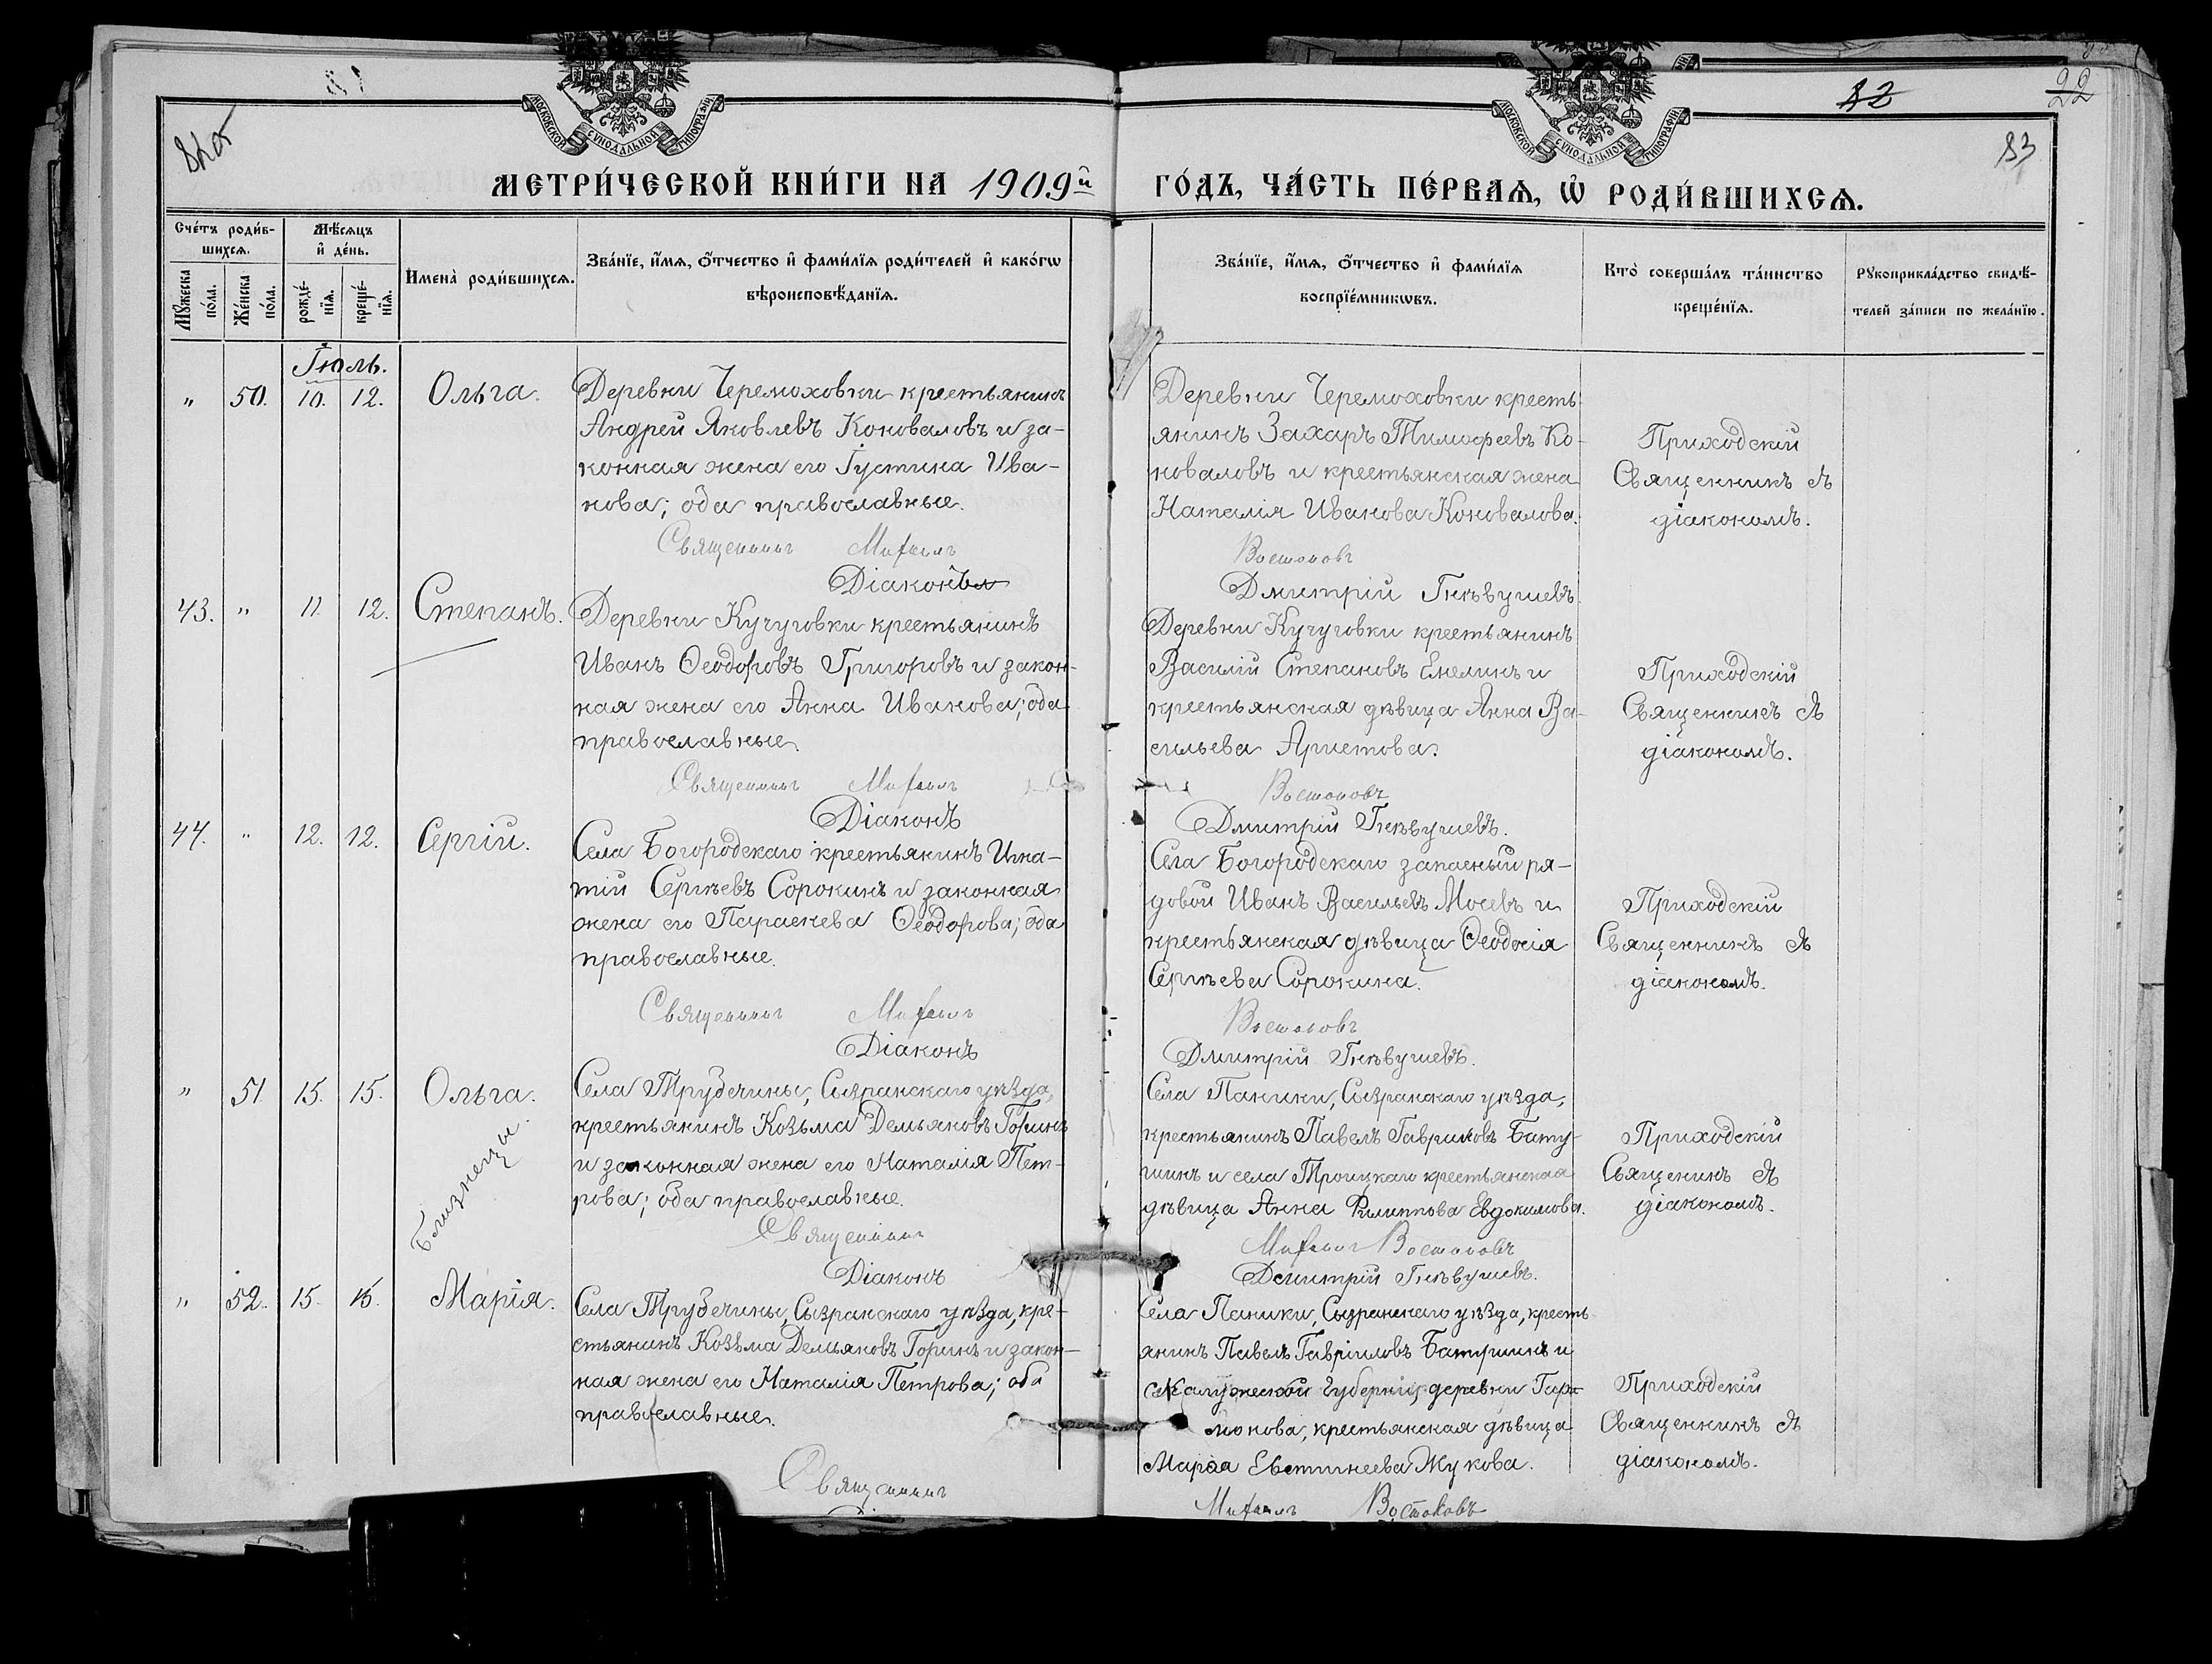 22
82
83
82об
МОСКОВСКОЙ СѴНОДАЛЬНОЙ ТИПОГРАФІИ
МОСКОВСКОЙ СѴНОДАЛЬНОЙ ТИПОГРАФІИ
МЕТРИ́ЧЕСКОЙ КНИ́ГИ НА 1909й ГО́ДЪ, ЧА́СТЬ ПЕ́РВАѦ, Ѡ҆ РОДИ́ВШИХСѦ.
Сче́тъ роди́в-
шихсѧ.
Мꙋ́жеска
по́ла.
Же́нска
по́ла.
Мѣ́сѧцъ
и҆ де́нь.
рожде́-
нїѧ.
креще́-
нїѧ.
Имена̀ роди́вшихсѧ.
Зва́нїе, и҆́мѧ, ѻ҆́тчество и҆ фами́лїѧ роди́телей и҆ како́гѡ
вѣроисповѣ́данїѧ.
Зва́нїе, и҆́мѧ, ѻ҆́тчество и҆ фами́лїѧ
воспрїе́мникѡвъ.
Кто̀ соверша́лъ та́инство
креще́нїѧ.
Рꙋкоприкла́дство свидѣ́-
телей за́писи по жела́нїю.
Іюль.
" 50. 10. 12. Ольга.
Деревни Черемоховки крестьянинъ
Андрей Яковлевъ Коноваловъ и за-
конная жена его Іустина Ива-
нова; оба православные.
Священникъ Михаилъ
Діаконъ
Деревни Черемоховки кресть-
янинъ Захаръ Тимофеевъ Ко-
новаловъ и крестьянская жена
Наталія Иванова Коновалова.
Востоковъ
Дмитрій Гнѣвушевъ.
Приходскій
Священникъ съ
діакономъ.
43. " 11. 12. Степанъ.
Деревни Кучуговки крестьянинъ
Иванъ Ѳеодоровъ Григоровъ и закон-
ная жена его Анна Иванова; оба
православные.
Священникъ Михаилъ
Діаконъ
Деревни Кучуговки крестьянинъ
Василій Степановъ Емелинъ и
крестьянская дѣвица Анна Ва-
сильева Аристова.
Востоковъ
Дмитрій Гнѣвушевъ.
Приходскій
Священникъ съ
діакономъ.
44. " 12. 12. Сергій.
Села Богородскаго крестьянинъ Игна-
тій Сергѣевъ Сорокинъ и законная
жена его Параскева Ѳеодорова; оба
православные.
Священникъ Михаилъ
Діаконъ
Села Богородскаго запасный ря-
довой Иванъ Васильевъ Мосевъ и
крестьянская дѣвица Ѳеодосія
Сергѣева Сорокина.
Востоковъ
Дмитрій Гнѣвушевъ.
Приходскій
Священникъ съ
діакономъ.
" 51 15. 15. Ольга.
Близнецы.
Села Трубечины, Сызранскаго уѣзда,
крестьянинъ Козьма Демьяновъ Горинъ
и законная жена его Наталія Пет-
рова; оба православные.
Священникъ
Діаконъ
Села Паники, Сызранскаго уѣзда,
крестьянинъ Павелъ Гавриловъ Бату-
шинъ и села Троицкаго крестьянская
дѣвица Анна Филиппова Евдокимова.
Михаилъ Востоковъ
Дмитрій Гнѣвушевъ.
Приходскій
Священникъ съ
діакономъ.
" 52. 15. 15. Марія.
Села Трубечины, Сызранскаго уѣзда, кре-
стьянинъ Козьма Демьяновъ Горинъ и закон-
ная жена его Наталія Петрова; оба
православные.
Священникъ
Села Паники, Сызранскаго уѣзда, кресть-
янинъ Павелъ Гавріиловъ Батушинъ и
Калужской губерніи, деревни Гара-
монова, крестьянская дѣвица
Марѳа Евстигнеева Жукова.
Михаилъ Востоковъ
Приходскій
Священникъ съ
діакономъ.